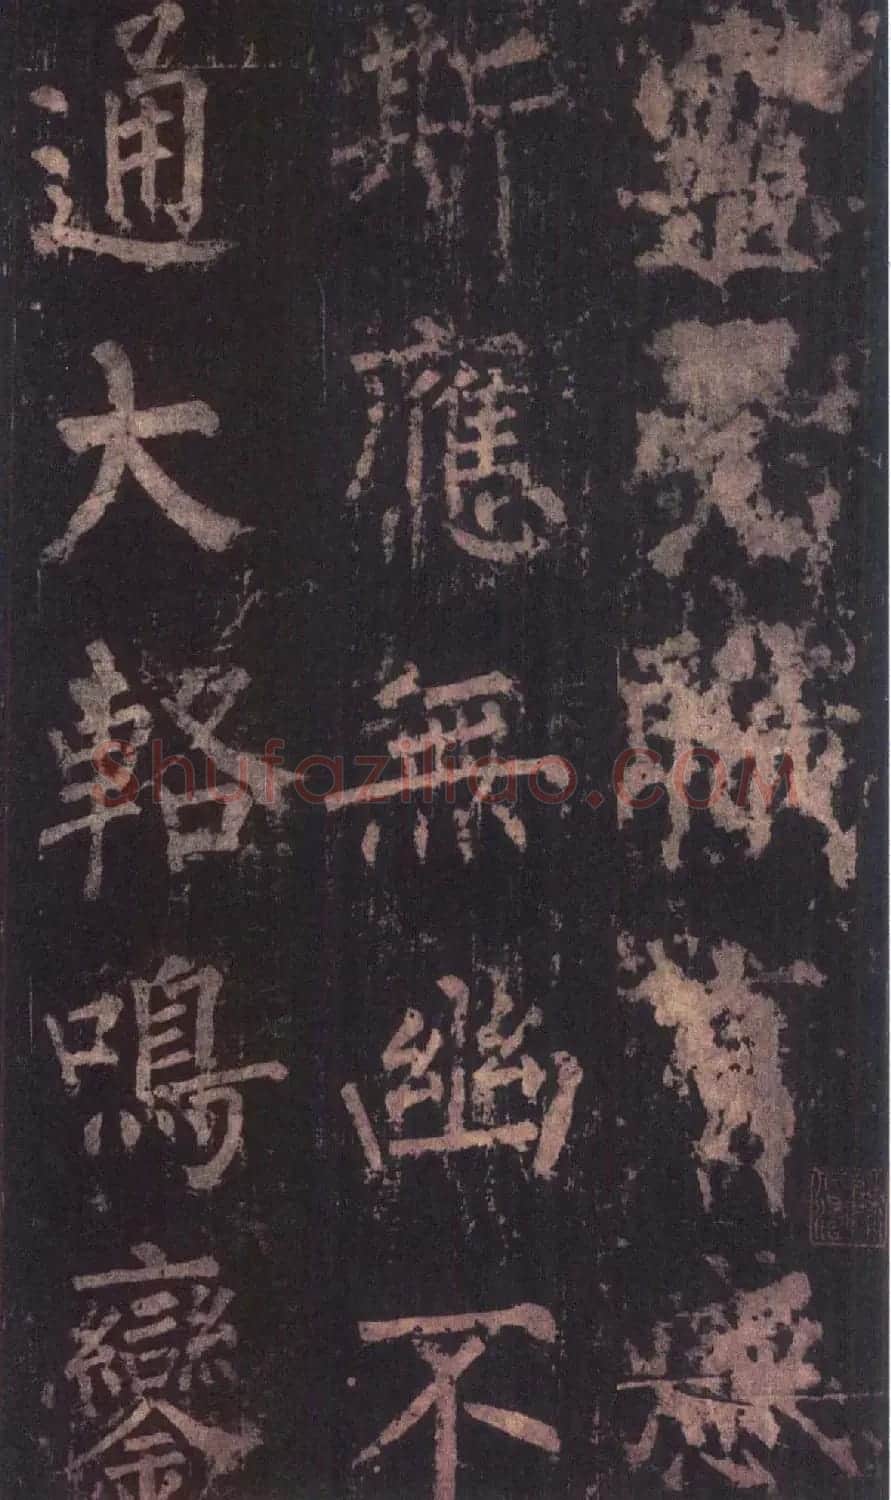 靈職有感
斯應無幽不
通大輅鳴鑾
Shufaziliao.COM